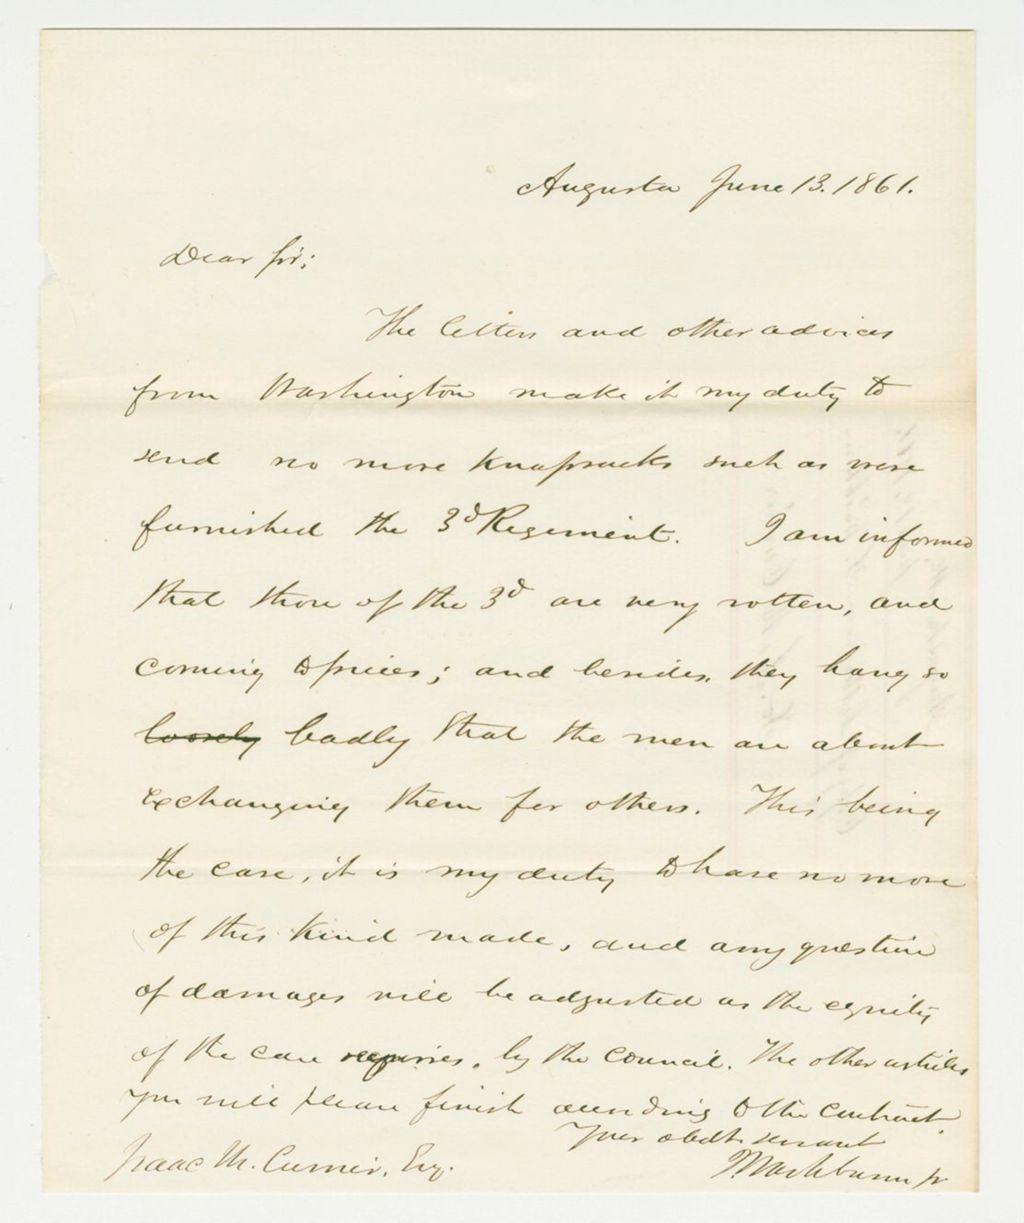 Augusta June 13. 1861.
Dear Sir;
The letters and other advices
from Washington make it my duty to
send no more knapsacks such as were
furnished the 3d Regiment. I am informed
that those of the 3d are very rotten, and
coming to pieces; and besides, they hang so
loosely badly that the men are about
exchanging them for others. This being
the case, it is my duty to have no more
of this kind made, and any question
of damages will be adjusted as the equity
of the case requires, by the Council. The other articles
you will please finish according to the contract.
Your obdt servant
Washburn Jr
Isaac M. Currier, Esq.